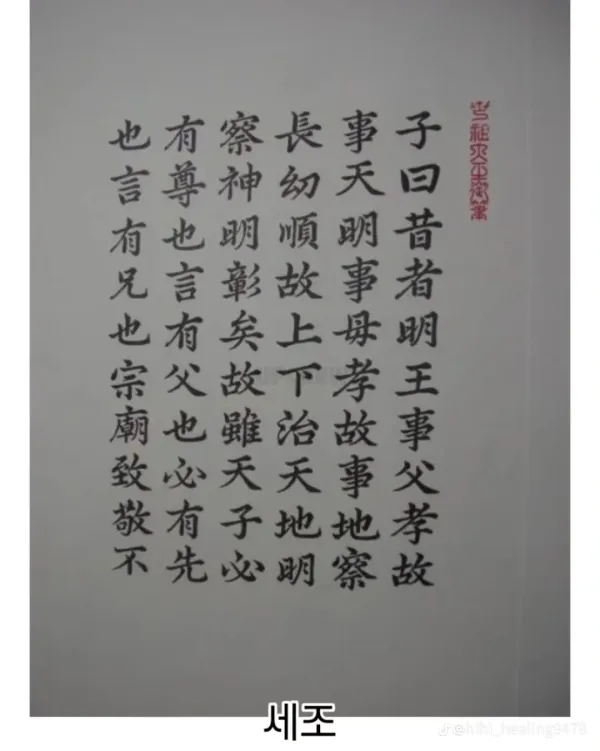 世祖大王御筆
子曰昔者明王事父孝故
事天明事母孝故事地察
長幼順故上下治天地明
察神明彰矣故雖天子必
有尊也言有父也必有先
也言有兄也宗廟致敬不
세조
@hihi_healing9478